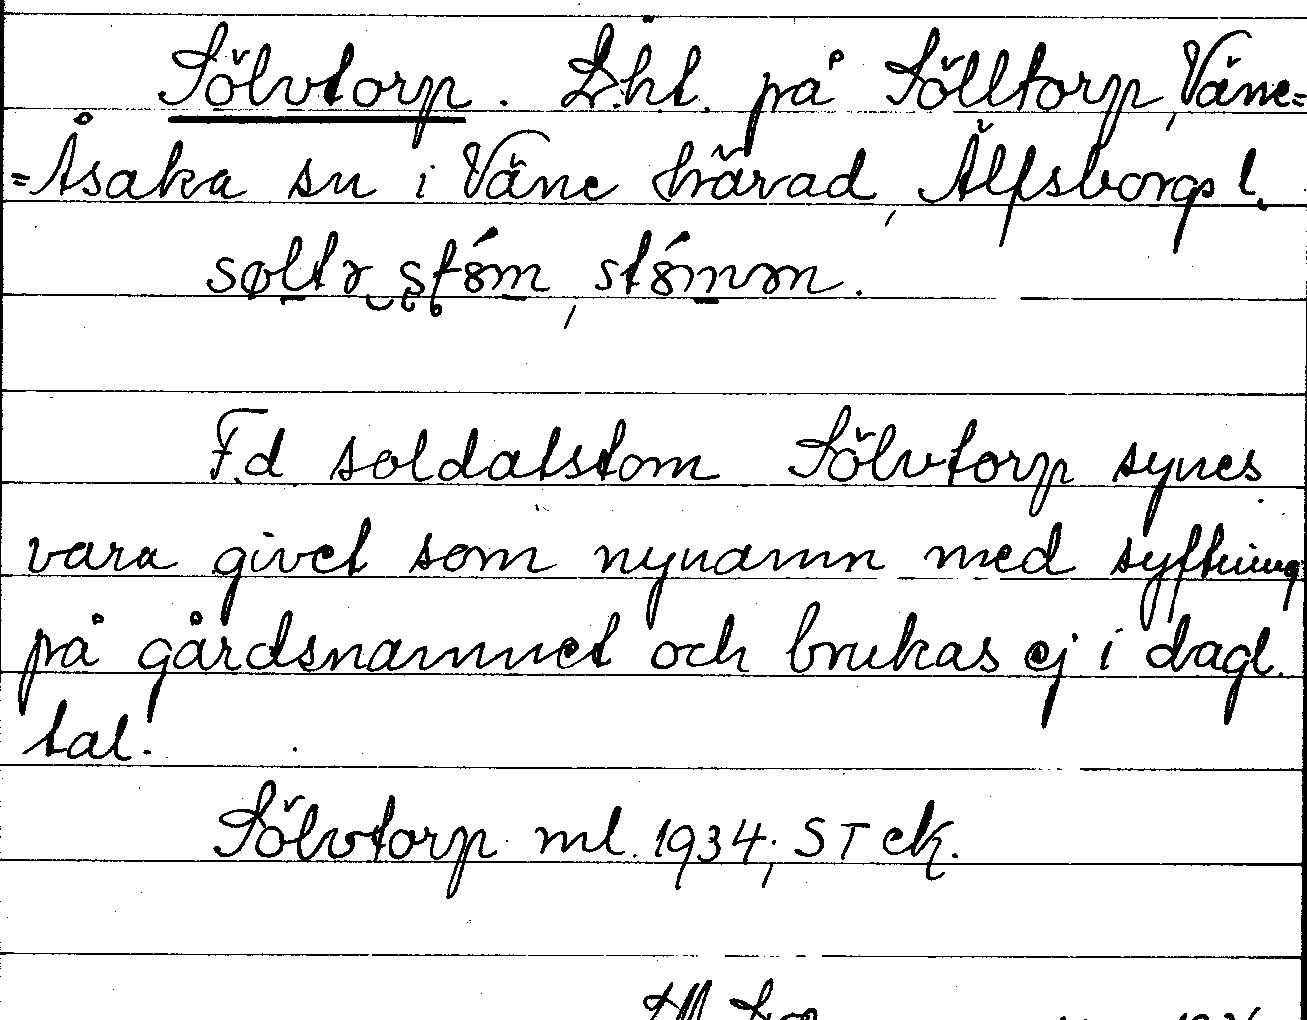 Sölvtorp. Lht. på Sölltorp, Väne=
=Åsaka sn i Väne härad, Älfsborgs l.
F.d soldatstom Sölvtorp synes
vara givet som nynamn med syftning
på gårdsnamnet och brukas ej i dagl.
tal.
Sölvtorp ml. 1934; ST ek.